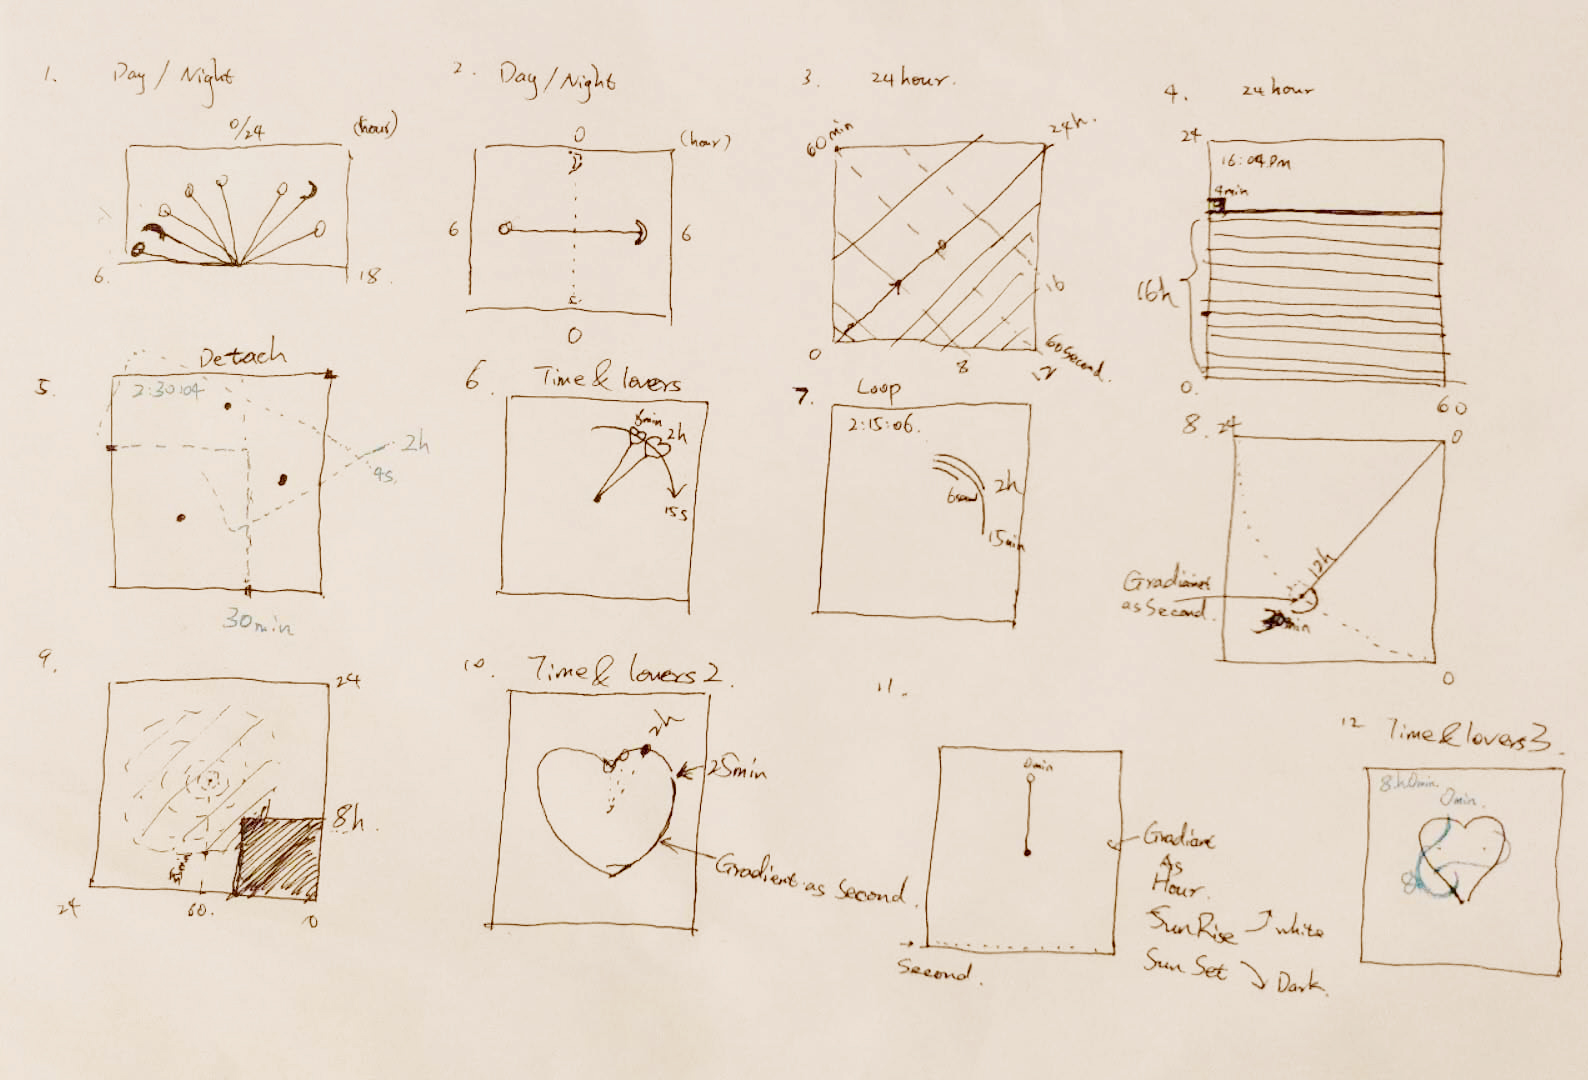 1. Day / Night
0/24
(hour)
6.
18.
2. Day / Night
0
(hour)
6
6
0
3. 24 hour.
60min
24h.
0
8
16
60second.
4. 24 hour
24
16:04pm
4min
16h
0.
60
5. Detach
2:30:04
2h
4s.
30min
6. Time & lovers
6min
2h
15s
7. Loop
2:15:06.
2h
15min
8. 24
0
12h
Gradient
as Second.
0
9.
24
8h.
24
60.
0
10. Time & lovers 2.
2h
25min
Gradient as Second.
11.
0min
Gradient
As
Hour.
SunRise white
Sun Set Dark.
Second.
12 Time & lovers 3.
8h0min.
0min.
8